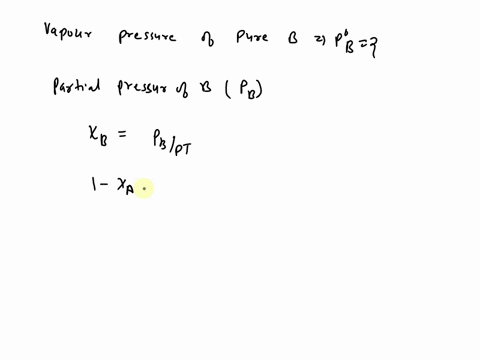 Vapour pressure of Pure B => P°B = ?
Partial pressure of B ( PB )
XB = PB/PT
1 - XA